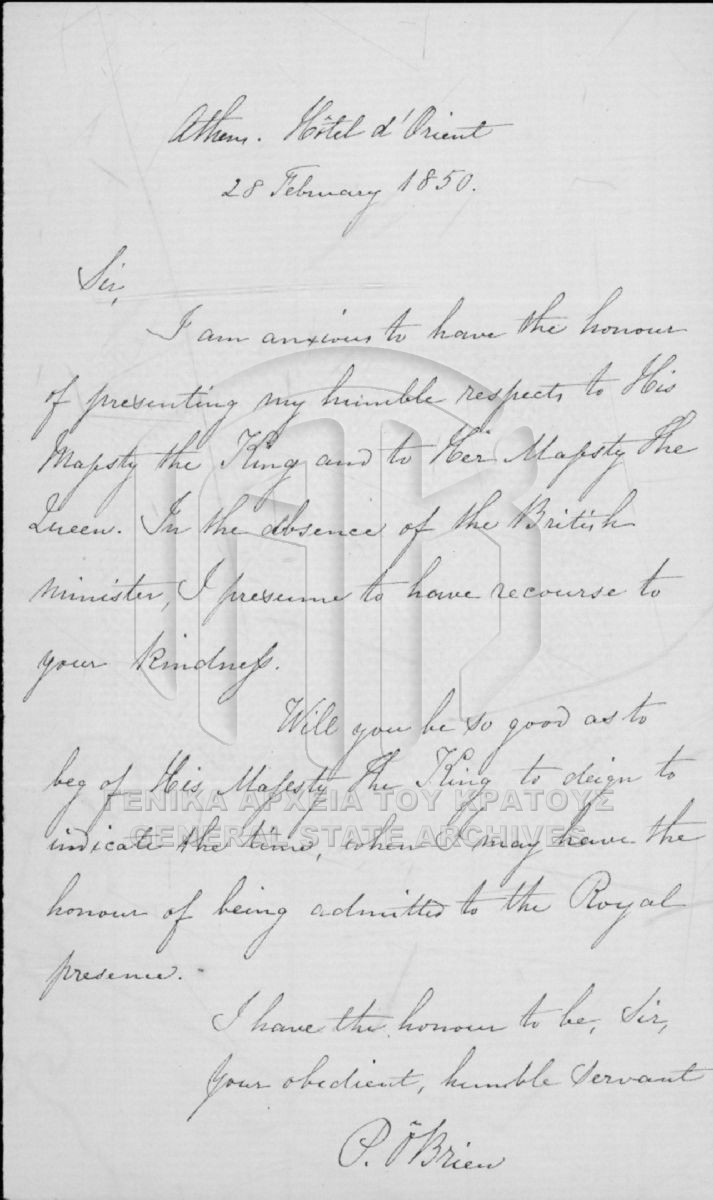 Athens. Hôtel d'Orient
28 February 1850.
Sir,
I am anxious to have the honour
of presenting my humble respects to His
Majesty the King and to Her Majesty the
Queen. In the absence of the British
minister, I presume to have recourse to
your kindness.
Will you be so good as to
beg of His Majesty the King to deign to
ΓΕΝΙΚΑ ΑΡΧΕΙΑ ΤΟΥ ΚΡΑΤΟΥΣ
indicate the time, when I may have the
GENERAL STATE ARCHIVES
honour of being admitted to the Royal
presence.
I have the honour to be, Sir,
your obedient, humble servant
P. O'Brien